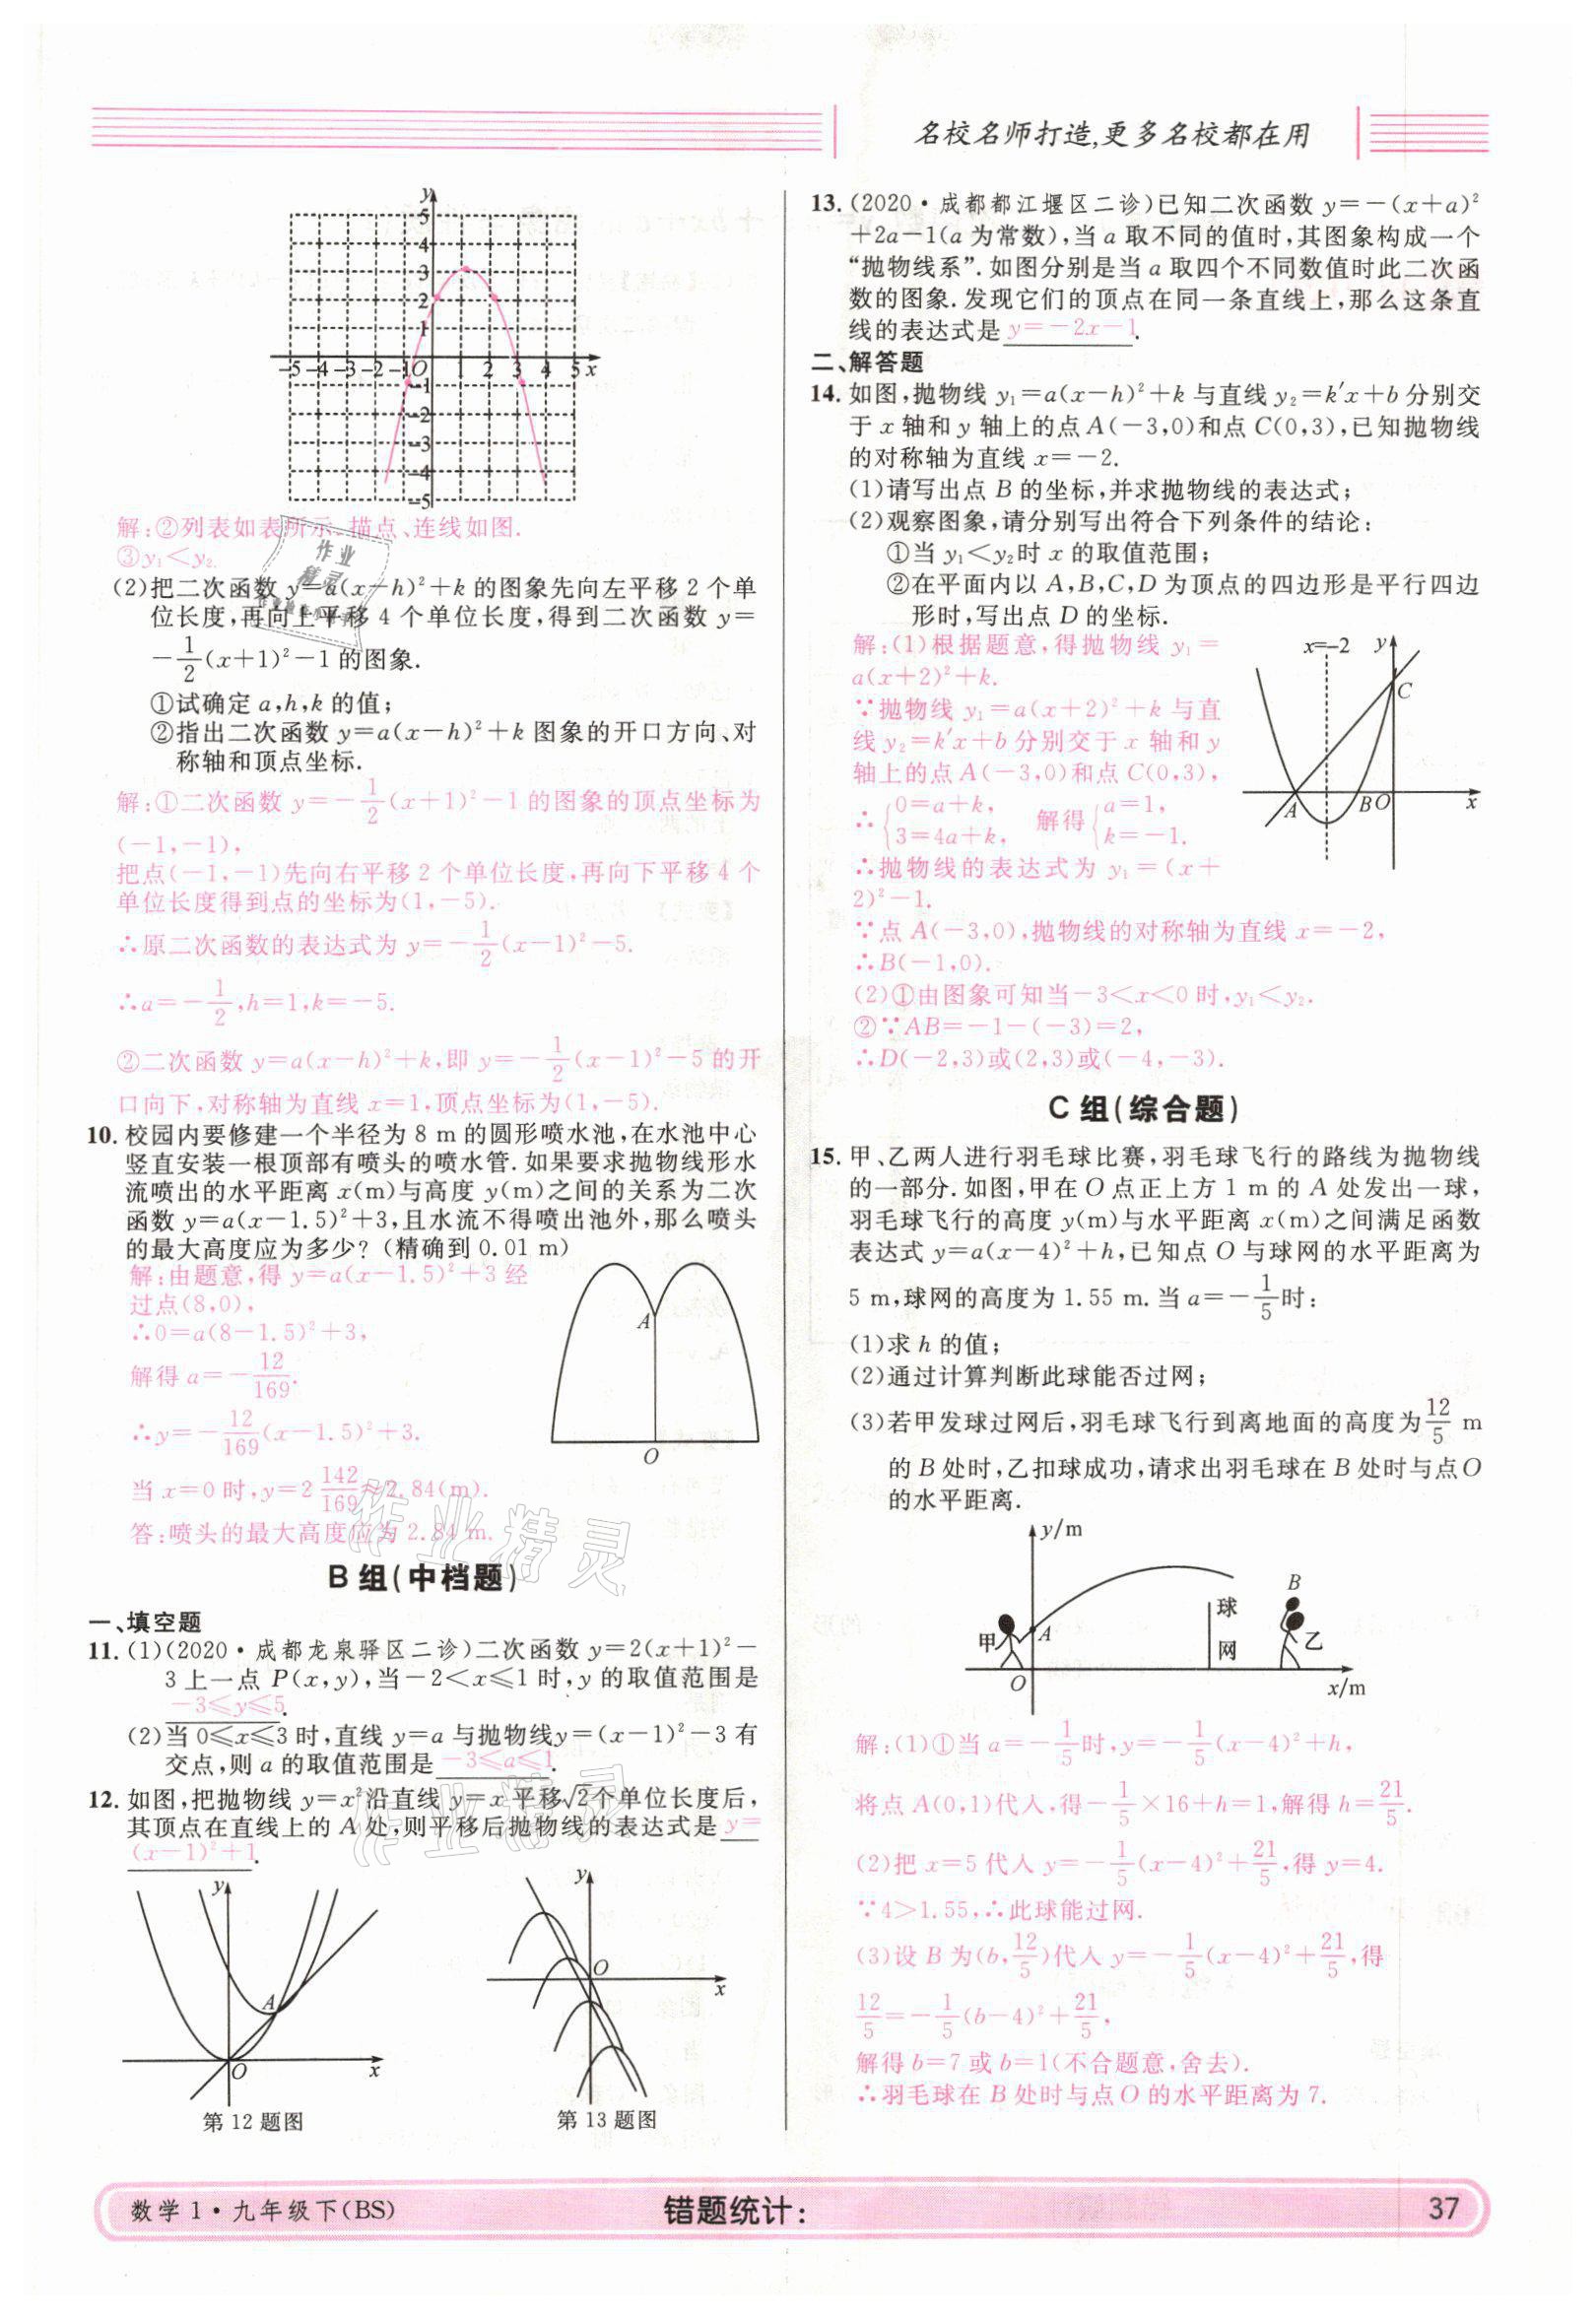 名校名师打造,更多名校都在用
y
5
4
3
2
1
-5 -4 -3 -2 -1 O 1 2 3 4 5 x
-1
-2
-3
-4
-5
解:②列表如表所示.描点、连线如图.
③y₁<y₂.
(2)把二次函数 y=a(x-h)²+k 的图象先向左平移 2 个单
位长度,再向上平移 4 个单位长度,得到二次函数 y=
-1/2(x+1)²-1 的图象.
①试确定 a,h,k 的值;
②指出二次函数 y=a(x-h)²+k 图象的开口方向、对
称轴和顶点坐标.
解:①二次函数 y=-1/2(x+1)²-1 的图象的顶点坐标为
(-1,-1),
把点(-1,-1)先向右平移 2 个单位长度,再向下平移 4 个
单位长度得到点的坐标为(1,-5).
∴原二次函数的表达式为 y=-1/2(x-1)²-5.
∴a=-1/2,h=1,k=-5.
②二次函数 y=a(x-h)²+k,即 y=-1/2(x-1)²-5 的开
口向下,对称轴为直线 x=1,顶点坐标为(1,-5).
10. 校园内要修建一个半径为 8 m 的圆形喷水池,在水池中心
竖直安装一根顶部有喷头的喷水管.如果要求抛物线形水
流喷出的水平距离 x(m)与高度 y(m)之间的关系为二次
函数 y=a(x-1.5)²+3,且水流不得喷出池外,那么喷头
的最大高度应为多少?(精确到 0.01 m)
解:由题意,得 y=a(x-1.5)²+3 经
过点(8,0),
∴0=a(8-1.5)²+3,
解得 a=-12/169.
∴y=-12/169(x-1.5)²+3.
当 x=0 时,y=2 142/169≈2.84(m).
答:喷头的最大高度应为 2.84 m.
A
O
B 组(中档题)
一、填空题
11. (1)(2020·成都龙泉驿区二诊)二次函数 y=2(x+1)²-
3 上一点 P(x,y),当-2<x≤1 时,y 的取值范围是
-3≤y≤5.
(2)当 0≤x≤3 时,直线 y=a 与抛物线y=(x-1)²-3 有
交点,则 a 的取值范围是 -3≤a≤1.
12. 如图,把抛物线 y=x²沿直线 y=x 平移√2个单位长度后,
其顶点在直线上的 A 处,则平移后抛物线的表达式是 y=
(x-1)²+1.
y
A
O
x
第 12 题图
y
O
x
第 13 题图
13. (2020·成都都江堰区二诊)已知二次函数 y=-(x+a)²
+2a-1(a 为常数),当 a 取不同的值时,其图象构成一个
“抛物线系”.如图分别是当 a 取四个不同数值时此二次函
数的图象.发现它们的顶点在同一条直线上,那么这条直
线的表达式是 y=-2x-1.
二、解答题
14. 如图,抛物线 y₁=a(x-h)²+k 与直线 y₂=k′x+b 分别交
于 x 轴和 y 轴上的点 A(-3,0)和点 C(0,3),已知抛物线
的对称轴为直线 x=-2.
(1)请写出点 B 的坐标,并求抛物线的表达式;
(2)观察图象,请分别写出符合下列条件的结论:
①当 y₁<y₂时 x 的取值范围;
②在平面内以 A,B,C,D 为顶点的四边形是平行四边
形时,写出点 D 的坐标.
解:(1)根据题意,得抛物线 y₁=
a(x+2)²+k.
∵抛物线 y₁=a(x+2)²+k 与直
线 y₂=k′x+b 分别交于 x 轴和 y
轴上的点 A(-3,0)和点 C(0,3),
∴{0=a+k, 3=4a+k, 解得{a=1, k=-1.
∴抛物线的表达式为 y₁=(x+
2)²-1.
∵点 A(-3,0),抛物线的对称轴为直线 x=-2,
∴B(-1,0).
(2)①由图象可知当-3<x<0 时,y₁<y₂.
②∵AB=-1-(-3)=2,
∴D(-2,3)或(2,3)或(-4,-3).
x=-2
y
C
A
B
O
x
C 组(综合题)
15. 甲、乙两人进行羽毛球比赛,羽毛球飞行的路线为抛物线
的一部分.如图,甲在 O 点正上方 1 m 的 A 处发出一球,
羽毛球飞行的高度 y(m)与水平距离 x(m)之间满足函数
表达式 y=a(x-4)²+h,已知点 O 与球网的水平距离为
5 m,球网的高度为 1.55 m.当 a=-1/5时:
(1)求 h 的值;
(2)通过计算判断此球能否过网;
(3)若甲发球过网后,羽毛球飞行到离地面的高度为12/5 m
的 B 处时,乙扣球成功,请求出羽毛球在 B 处时与点O
的水平距离.
y/m
甲
A
O
球
网
B
乙
x/m
解:(1)①当 a=-1/5时,y=-1/5(x-4)²+h,
将点 A(0,1)代入,得-1/5×16+h=1,解得 h=21/5.
(2)把 x=5 代入 y=-1/5(x-4)²+21/5,得 y=4.
∵4>1.55,∴此球能过网.
(3)设 B 为(b,12/5)代入 y=-1/5(x-4)²+21/5,得
12/5=-1/5(b-4)²+21/5,
解得 b=7 或 b=1(不合题意,舍去).
∴羽毛球在 B 处时与点 O 的水平距离为 7.
作业精灵
作业精灵
作业精灵
数学 1·九年级下(BS)
错题统计:
37